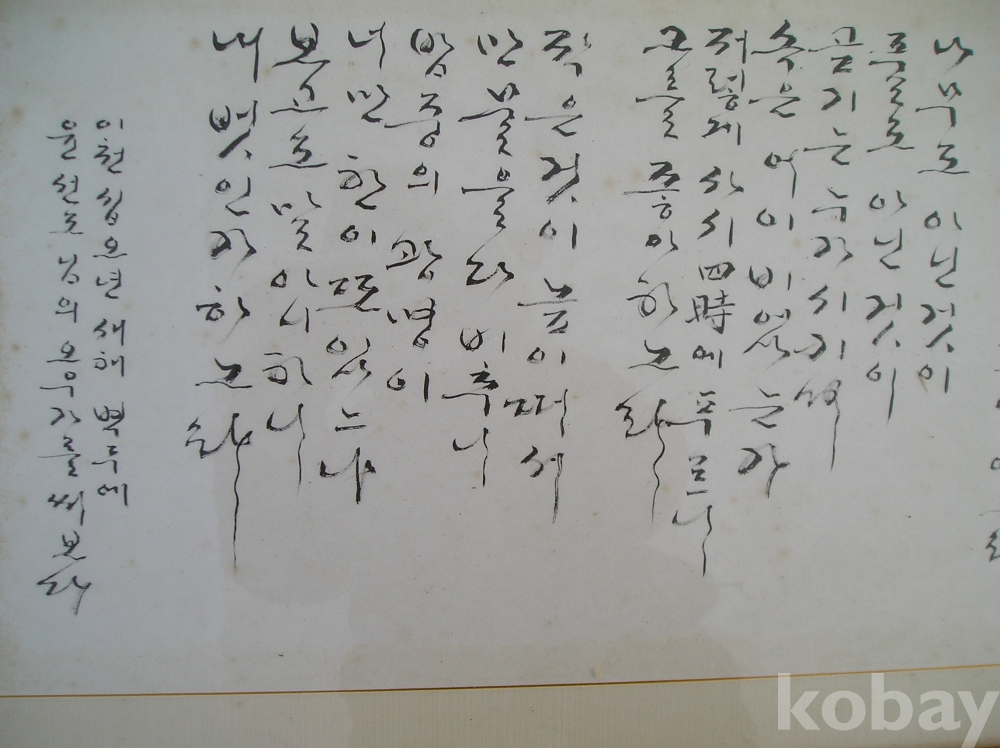 나무도 아닌 것이
풀도 아닌 것이
곧기는 누가 시기며
속은 어이 비었는가
저렇게 사시四時에 푸르니
그를 좋아하노라
작은 것이 높이 떠서
만물을 다 비추니
밤중의 광명이
너만 한이 또 있느냐
보고도 말 아니 하니
내 벗인가 하노라
이천십오년 새해 벽두에
윤선도 님의 오우가를 써 보다
kobay